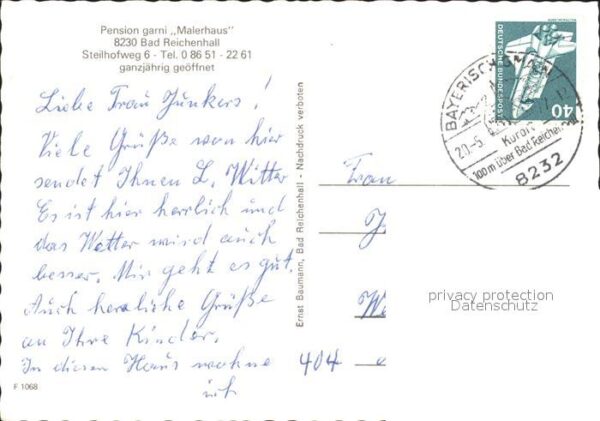 Pension garni „Malerhaus"
8230 Bad Reichenhall
Steilhofweg 6 - Tel. 0 86 51 - 22 61
ganzjährig geöffnet
Liebe Frau Junkers!
Viele Grüße von hier
sendet Ihnen L. Witter
Es ist hier herrlich und
das Wetter wird auch
besser. Mir geht es gut.
Auch herzliche Grüße
an Ihre Kinder.
In diesem Haus wohne
ich
F 1068
Ernst Baumann, Bad Reichenhall - Nachdruck verboten
DEUTSCHE BUNDESPOST
40
BAYERISCH GMAIN
20.-5.
Kurort
100m über Bad Reichenhall
8232
Frau
J
We
404
privacy protection
Datenschutz